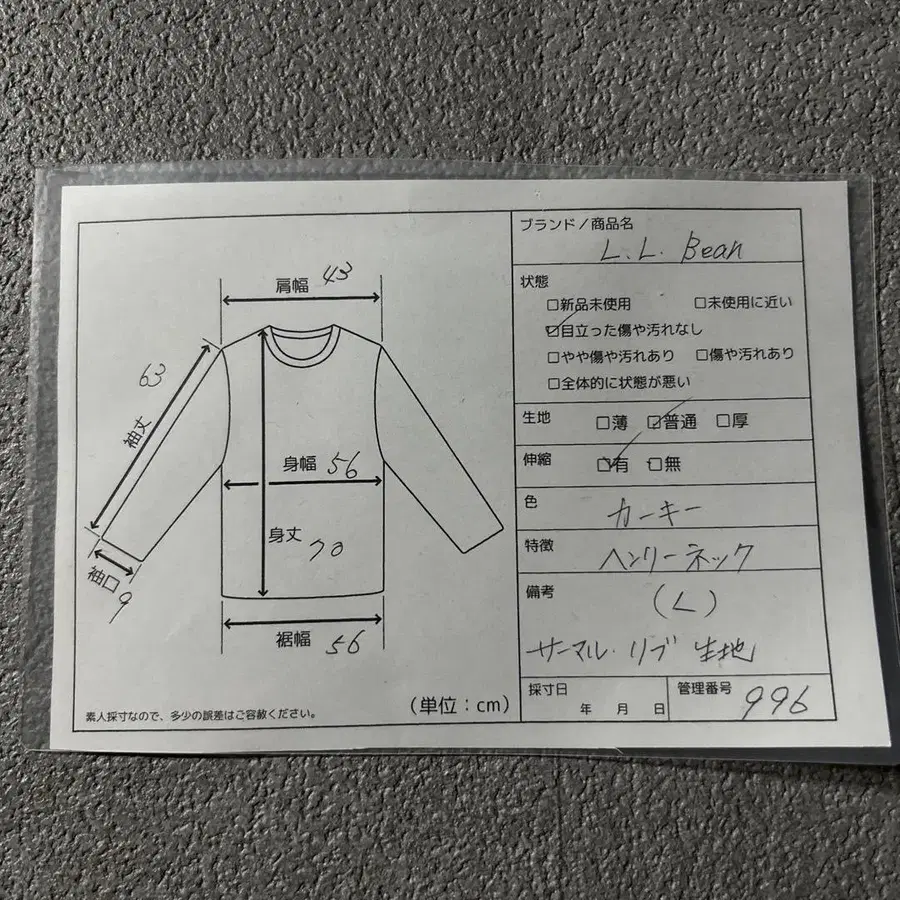 肩幅 43
63
袖丈
身幅 56
身丈 70
袖口 9
裾幅 56
素人採寸なので、多少の誤差はご容赦ください。
(単位:cm)
ブランド/商品名
L.L. Bean
状態
□新品未使用 □未使用に近い
☑目立った傷や汚れなし
□やや傷や汚れあり □傷や汚れあり
□全体的に状態が悪い
生地 □薄 ☑普通 □厚
伸縮 ☑有 □無
色 カーキー
特徴 ヘンリーネック
備考 (L)
サーマル・リブ 生地
採寸日 年 月 日
管理番号 996